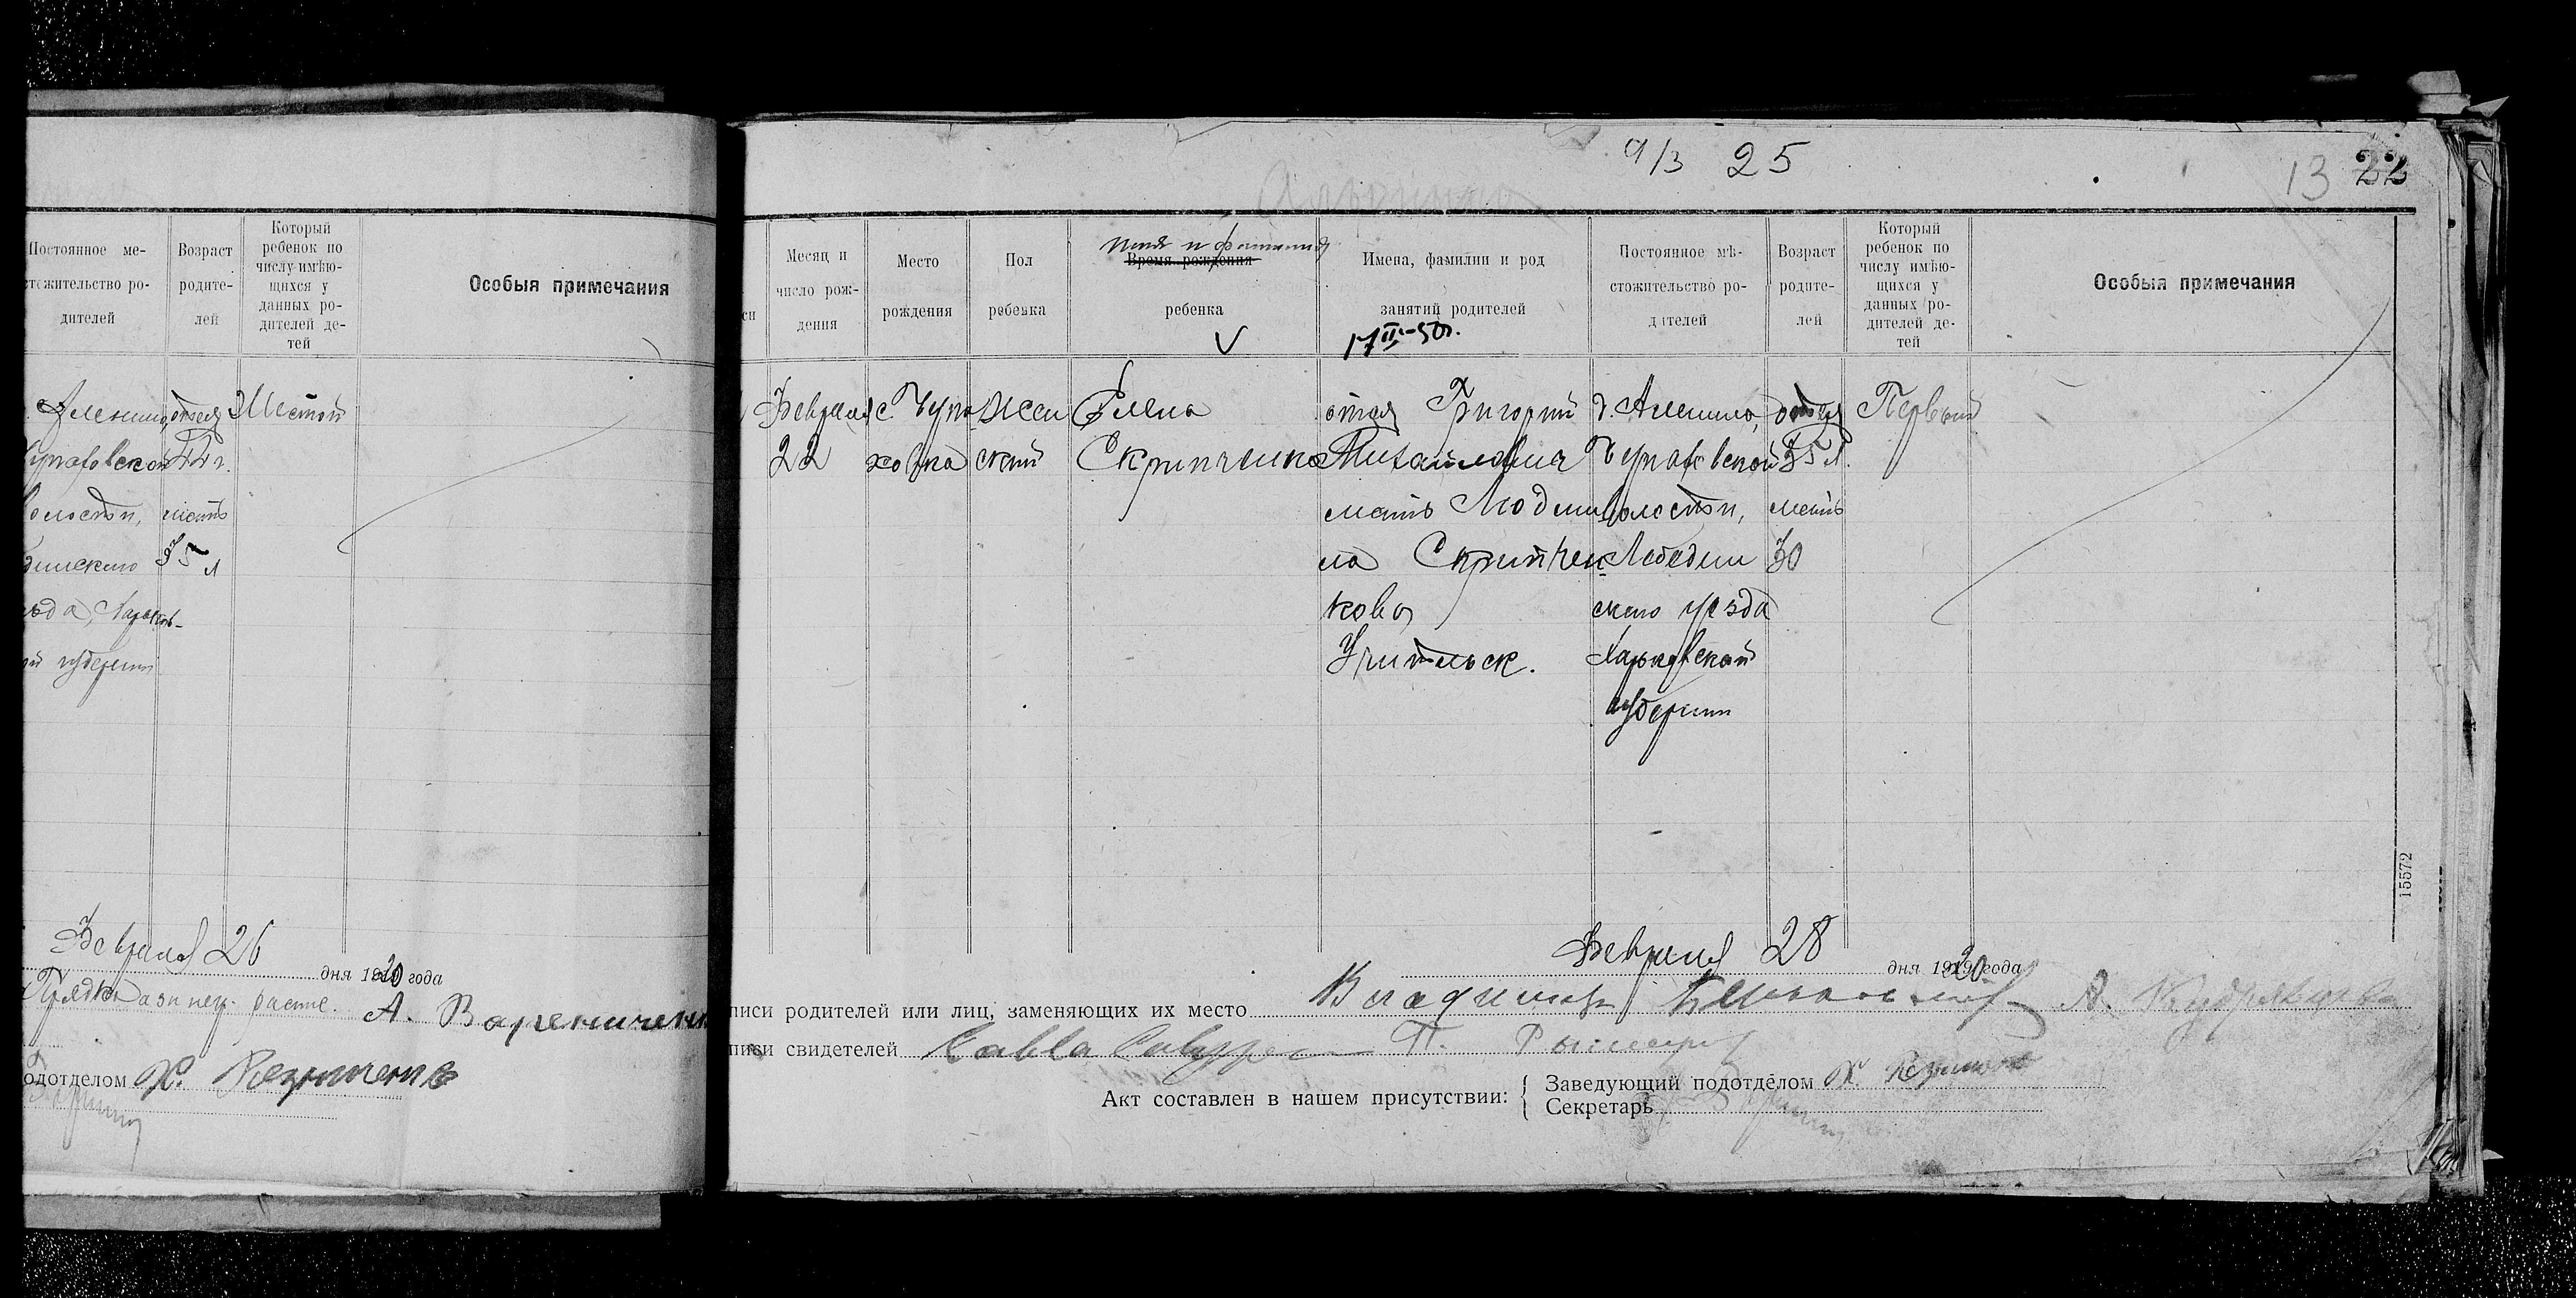 Постоянное ме-
стожительство ро-
дителей
Возраст
родите-
лей
Который
ребенок по
числу имѣю-
щихся у
данных ро-
дителей де-
тей
Особыя примечания
Шестой
44 г.
волости, мать
35 л
губернии
Февраля 26
дня 1920 года
А. Вареничен
одотделом Х.
9/3 25
13 22
Месяц и
число рож-
дения
Место
рождения
Пол
ребенка
имя и фамилия
Время рождения
ребенка
V
Имена, фамилии и род
занятий родителей
17 II-50г.
Постоянное мѣ-
стожительство ро-
дителей
Возраст
родите-
лей
Который
ребенок по
числу имѣю-
щихся у
данных ро-
дителей де-
тей
Особыя примечания
Февраля
22
с. Чупа
ховка
Жен
ский
Елена
Скрипченко
отец Григорий
Михайлович
мать Людми
ла Скрипчен
кова
Учительск.
д. Аленино,
Чупаховской
волости,
Лебедин
ского уезда
Харьковской
губернии
отец
35 л.
мать
30
Первый
15572
Февраля 28 дня 1920 года
писи родителей или лиц, заменяющих их место Владимир А. Кудрявцева
писи свидетелей Савва П.
Акт составлен в нашем присутствии:
Заведующий подотделом Х.
Секретарь